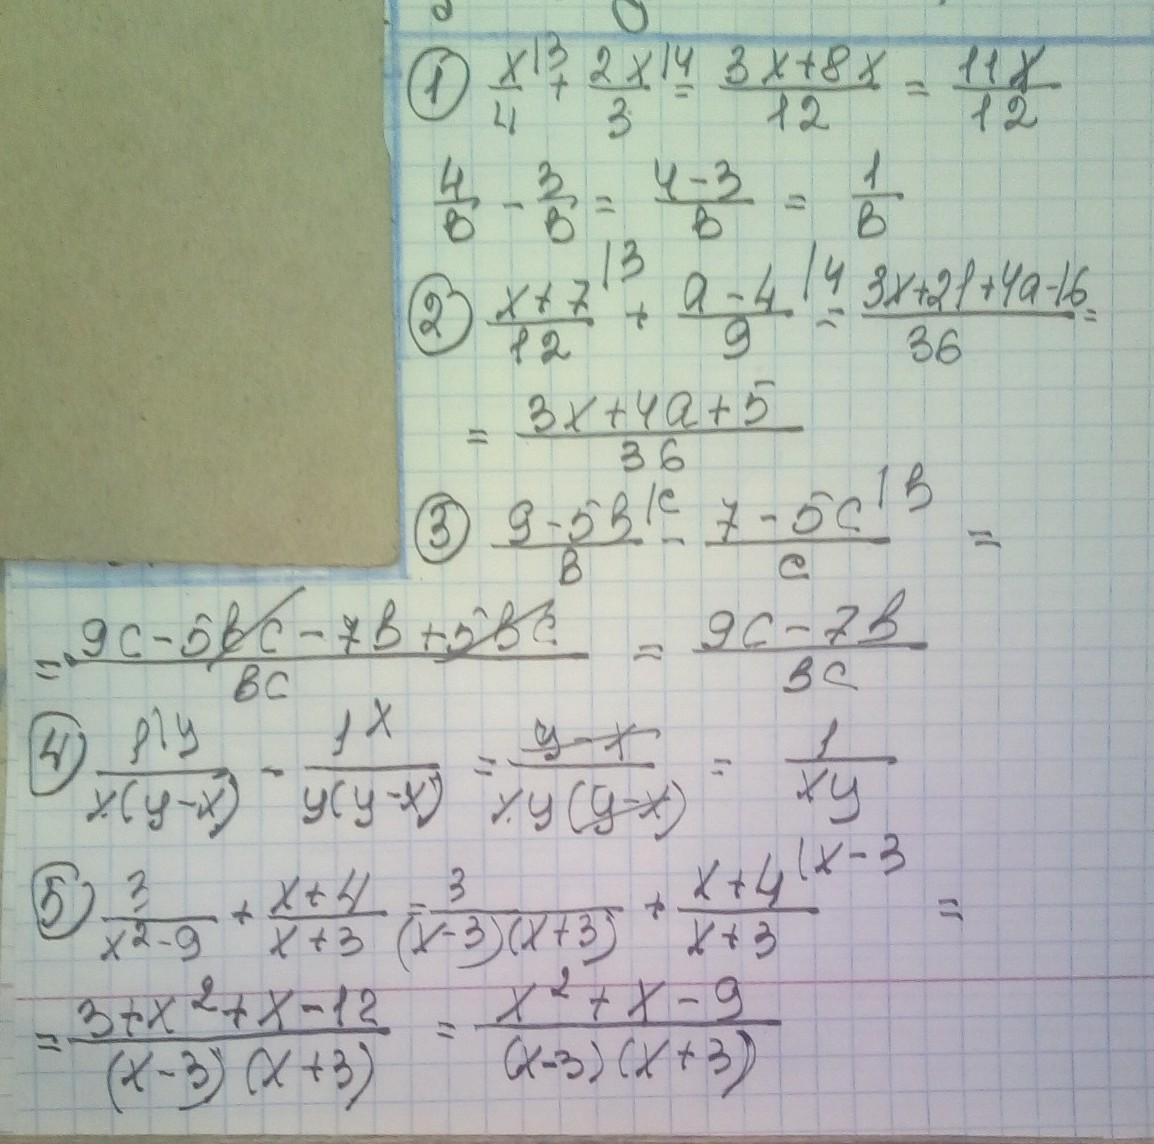 ① x/4 |3 + 2x/3 |4 = (3x+8x)/12 = 11x/12
4/в - 3/в = (4-3)/в = 1/в
② (x+7)/12 |3 + (a-4)/9 |4 = (3x+21+4a-16)/36 =
= (3x+4a+5)/36
③ (9-5в)/в |c - (7-5c)/c |в =
= (9c-5вc-7в+5вc)/вc = (9c-7в)/вc
④ 1/(x(y-x)) |y - 1/(y(y-x)) x = (y-x)/(xy(y-x)) = 1/(xy)
⑤ 3/(x²-9) + (x+4)/(x+3) = 3/((x-3)(x+3)) + (x+4)/(x+3) |x-3 =
= (3+x²+x-12)/((x-3)(x+3)) = (x²+x-9)/((x-3)(x+3))